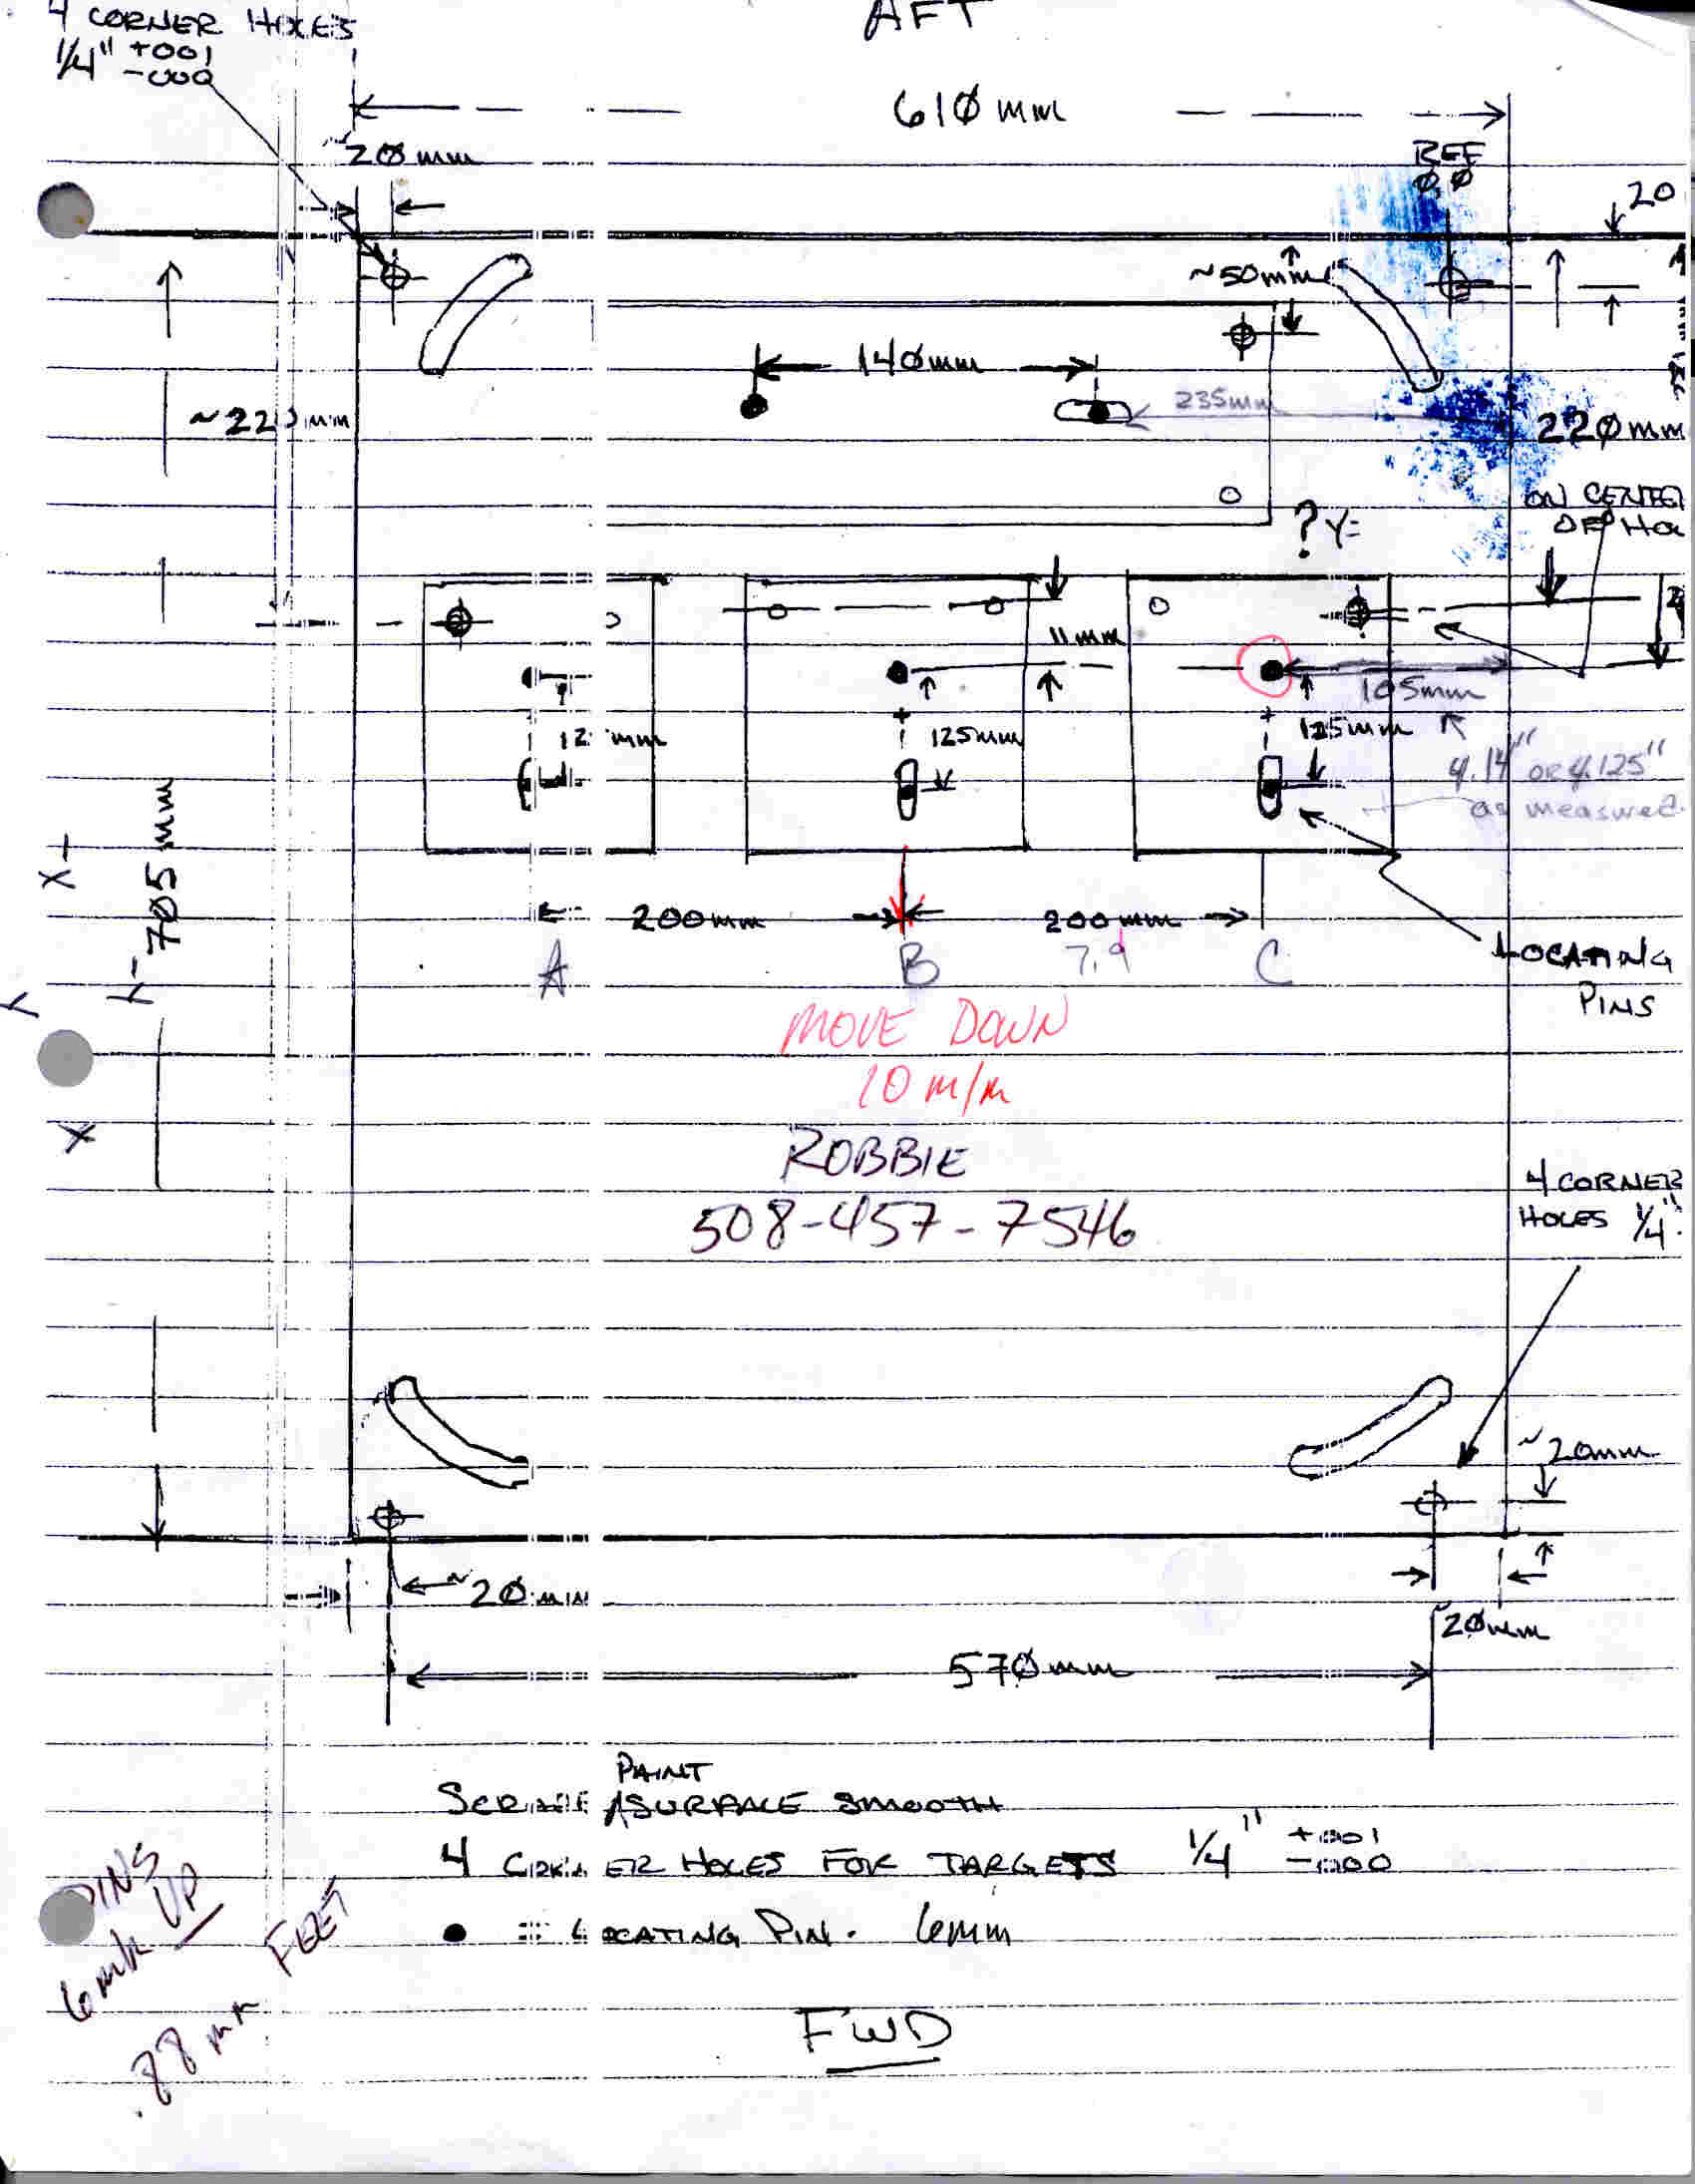 4 CORNER HOLES
1/4" +001
-000
AFT
610 mm
20 mm
REF
0,0
20
~50mm
140mm
235mm
~220mm
220mm
ON CENTER
OF HO
? Y=
11 mm
105mm
125mm
125mm
4.14" OR 4.125"
as measured
X-
705 mm
200mm
200mm
A
B
7.9
C
LOCATING
PINS
MOVE DOWN
10 m/m
X
ROBBIE
508-457-7546
4 CORNER
HOLES 1/4"
~20mm
~20 mm
~20mm
570mm
PAINT
SURFACE SMOOTH
4 CORNER HOLES FOR TARGETS 1/4" +.001
-.000
● = LOCATING PIN. 6mm
PINS
6mm UP
.88 mm FEET
FWD